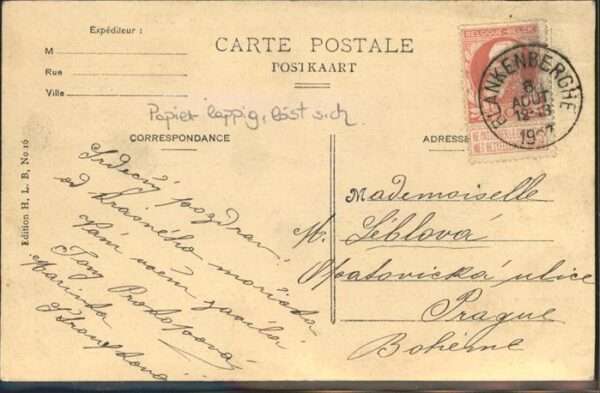 Expéditeur :
M
Rue
Ville
CARTE POSTALE
POSTKAART
Papier lappig, löst sich
CORRESPONDANCE
ADRESSE
Edition H. L. B, No 16
BELGIQUE-BELGIË
BLANKENBERGHE
6
AOUT
12-13
1907
Srdečný pozdrav
od krásného
Vám všem zasílá
Tony Prokopová
Mademoiselle
M. Léblová
Opatovická ulice
Prague
Bohême